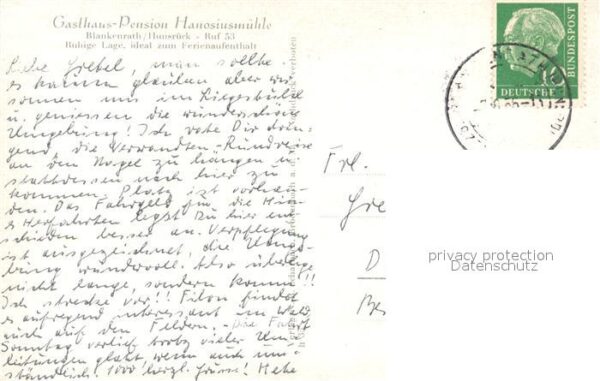 Gasthaus-Pension Hanosiusmühle
Blankenrath/Hunsrück - Ruf 53
Ruhige Lage, ideal zum Ferienaufenthalt
Liebe Gretel, man sollte
es kaum glauben aber wir
sonnen uns im Liegestühle
u. geniessen die wunderschöne
Umgebung! Ich rate Dir drin-
gend, die Verwandten-Rundreise
an den Nagel zu hängen u.
stattdessen nach hier zu
kommen. Platz ist vorhan-
den. Das Fahrgeld für die Hin-
u. Herfahrten legst Du hier ent-
schieden besser an. Verpflegung
ist ausgezeichnet, die Umge-
bung wundervoll. Also überlege
nicht lange, sondern komm!!!
Ich strecke vor!! Filou findet
es aufregend interessant im Wald
und auf den Feldern. - Die Fahrt
Sonntag verlief trotz vieler Um-
leitungen glatt, wenn auch um-
ständlich. 1000 herzl. Grüsse!
Frl.
Gre
D
DEUTSCHE
BUNDESPOST
10
privacy protection
Datenschutz